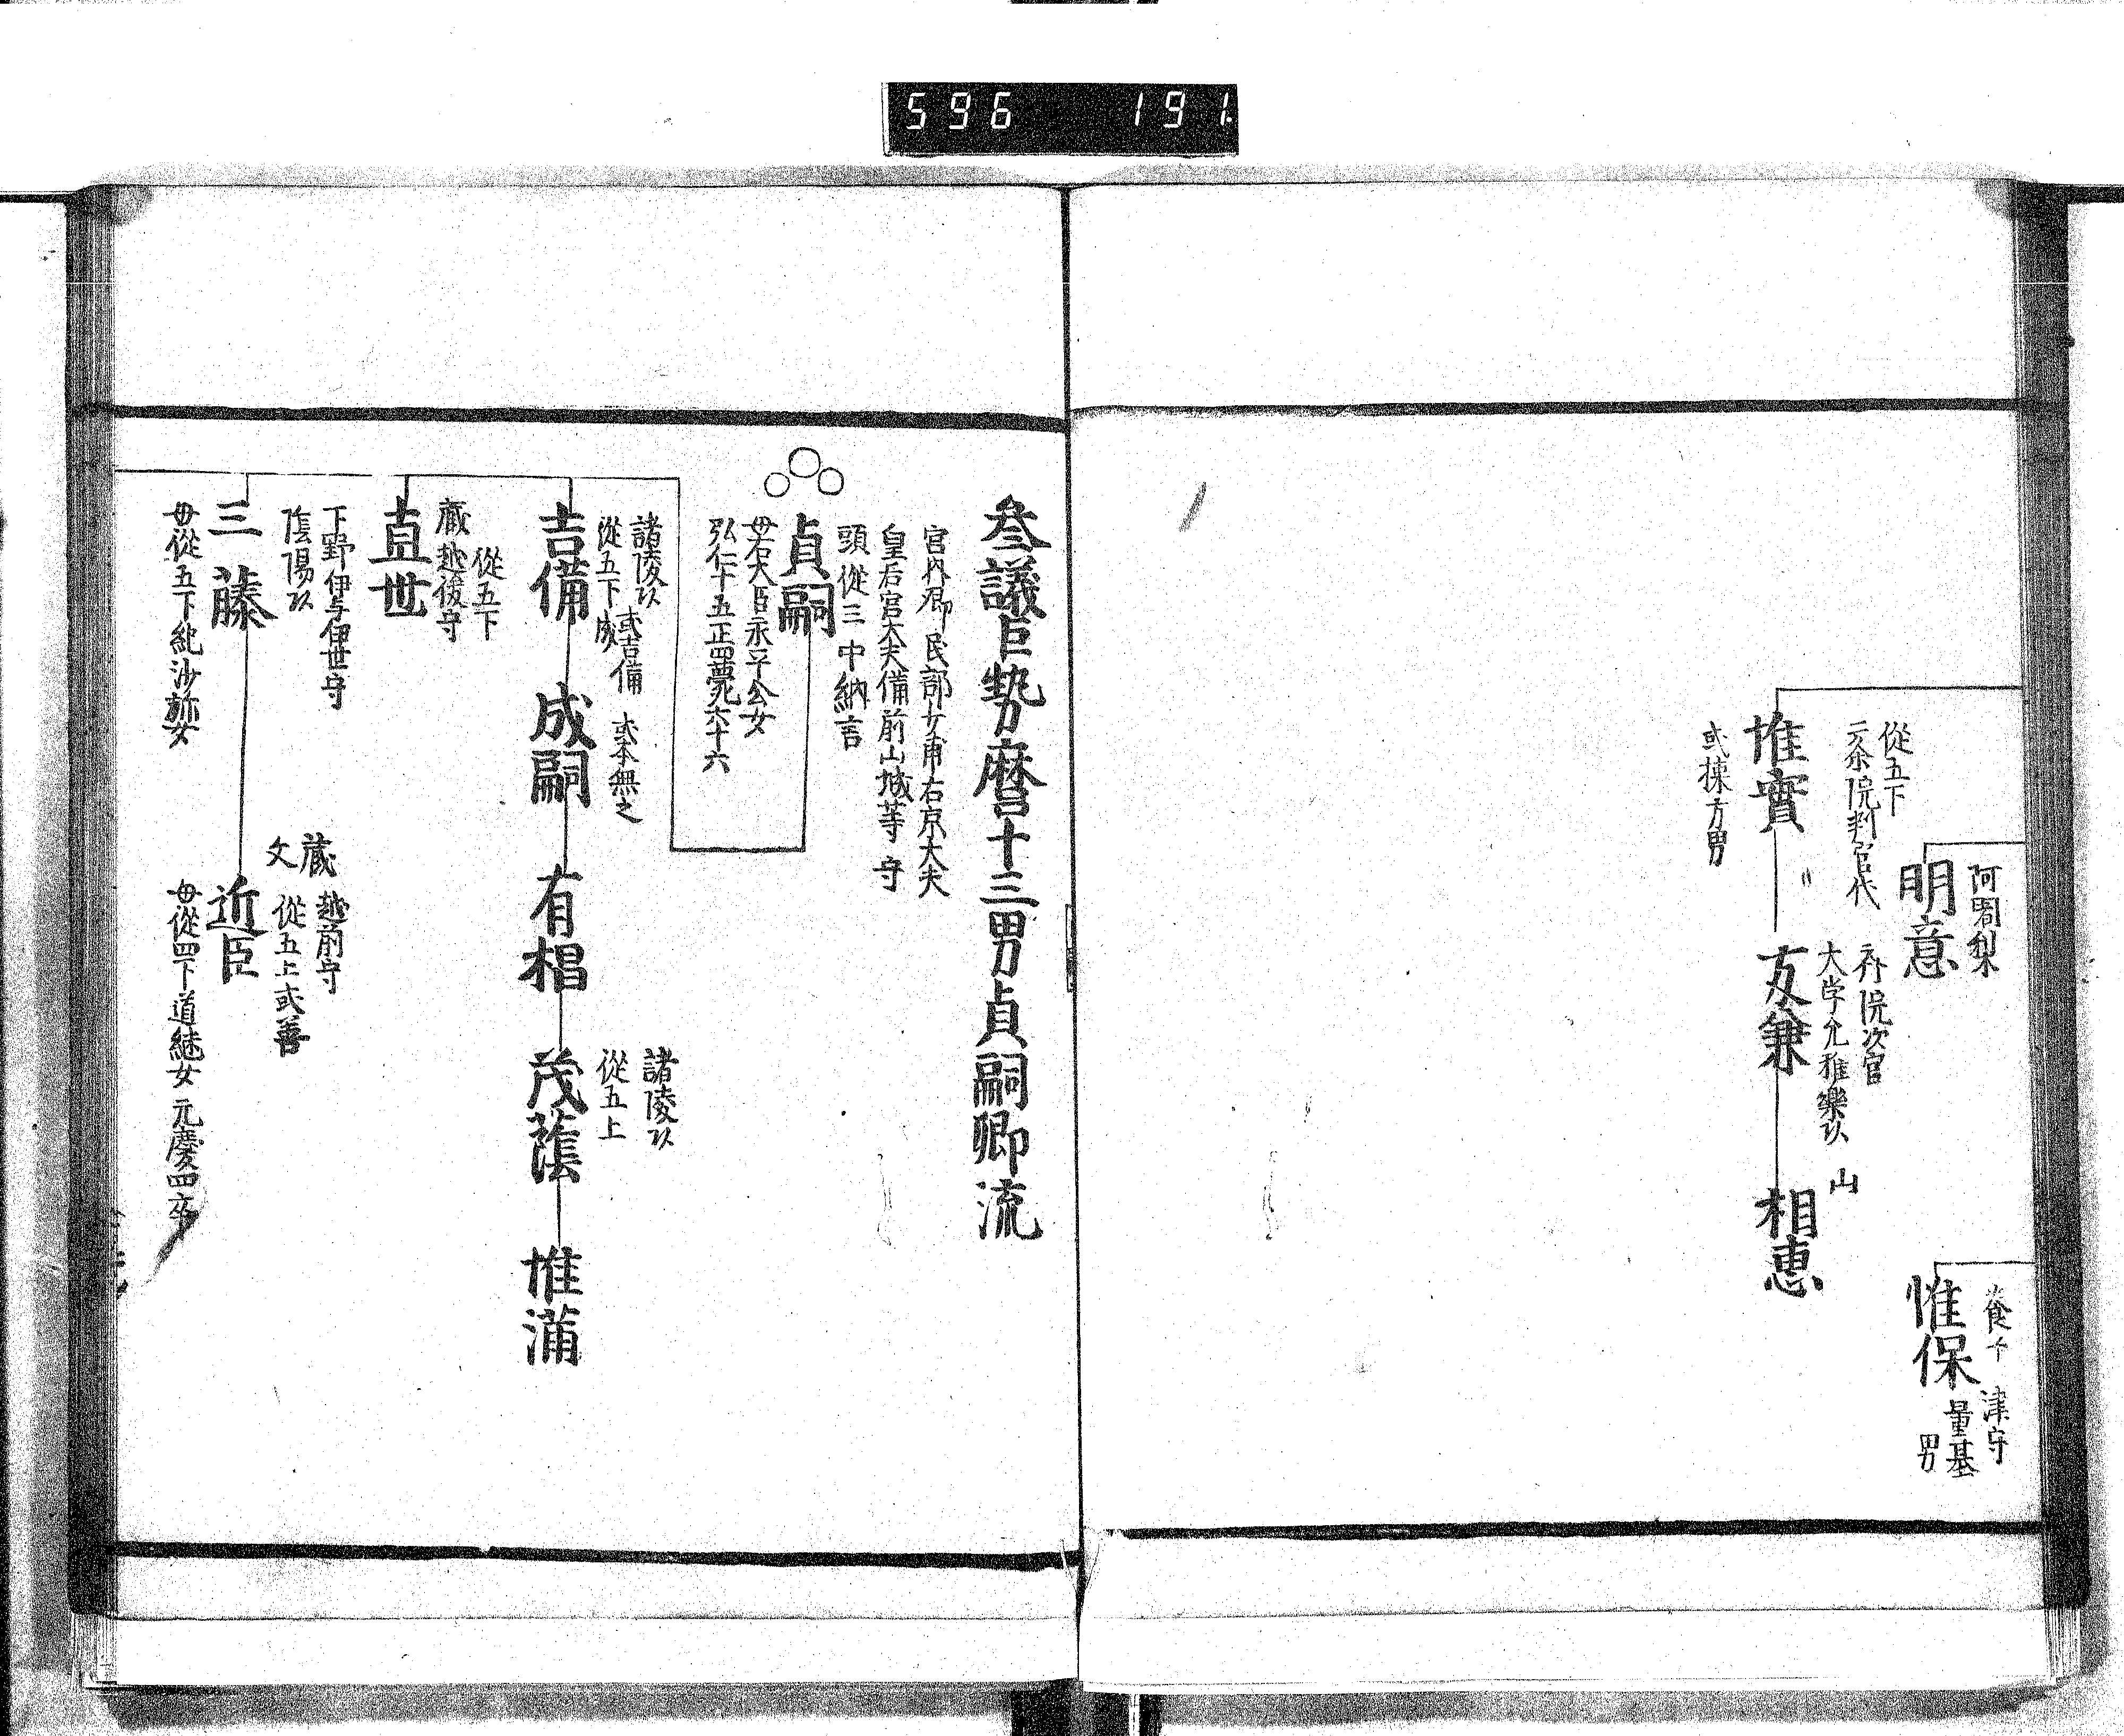 596 191
阿闍梨
明意
食千 津守
惟保
量基
男
從五下
院判官代
惟實
或棟方男
院次官
大学允雅樂以
友兼
山
相惠
叅議巨勢麿十三男貞嗣卿流
宮内卿 民部少甫右京大夫
皇后宮大夫備前山城等守
頭從三 中納言
貞嗣
母右大臣永手公女
弘仁十五正四薨六十六
諸陵以
從五下 成
或吉備 或本無之
吉備
成嗣
有相
諸陵以
從五上
茂蔭
惟滿
從五下
藏 越後守
直世
下野伊与伊世守
陰陽以
三藤
母從五下紀沙弥女
藏 越前守
文 從五上或善
近臣
母從四下道継女 元慶四卒